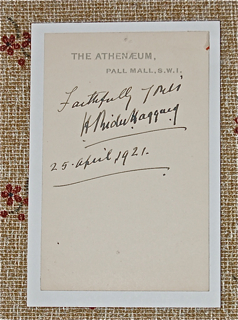 THE ATHENÆUM,
PALL MALL, S.W.1.
Faithfully Yours
H Rider Haggard
25. April 1921.